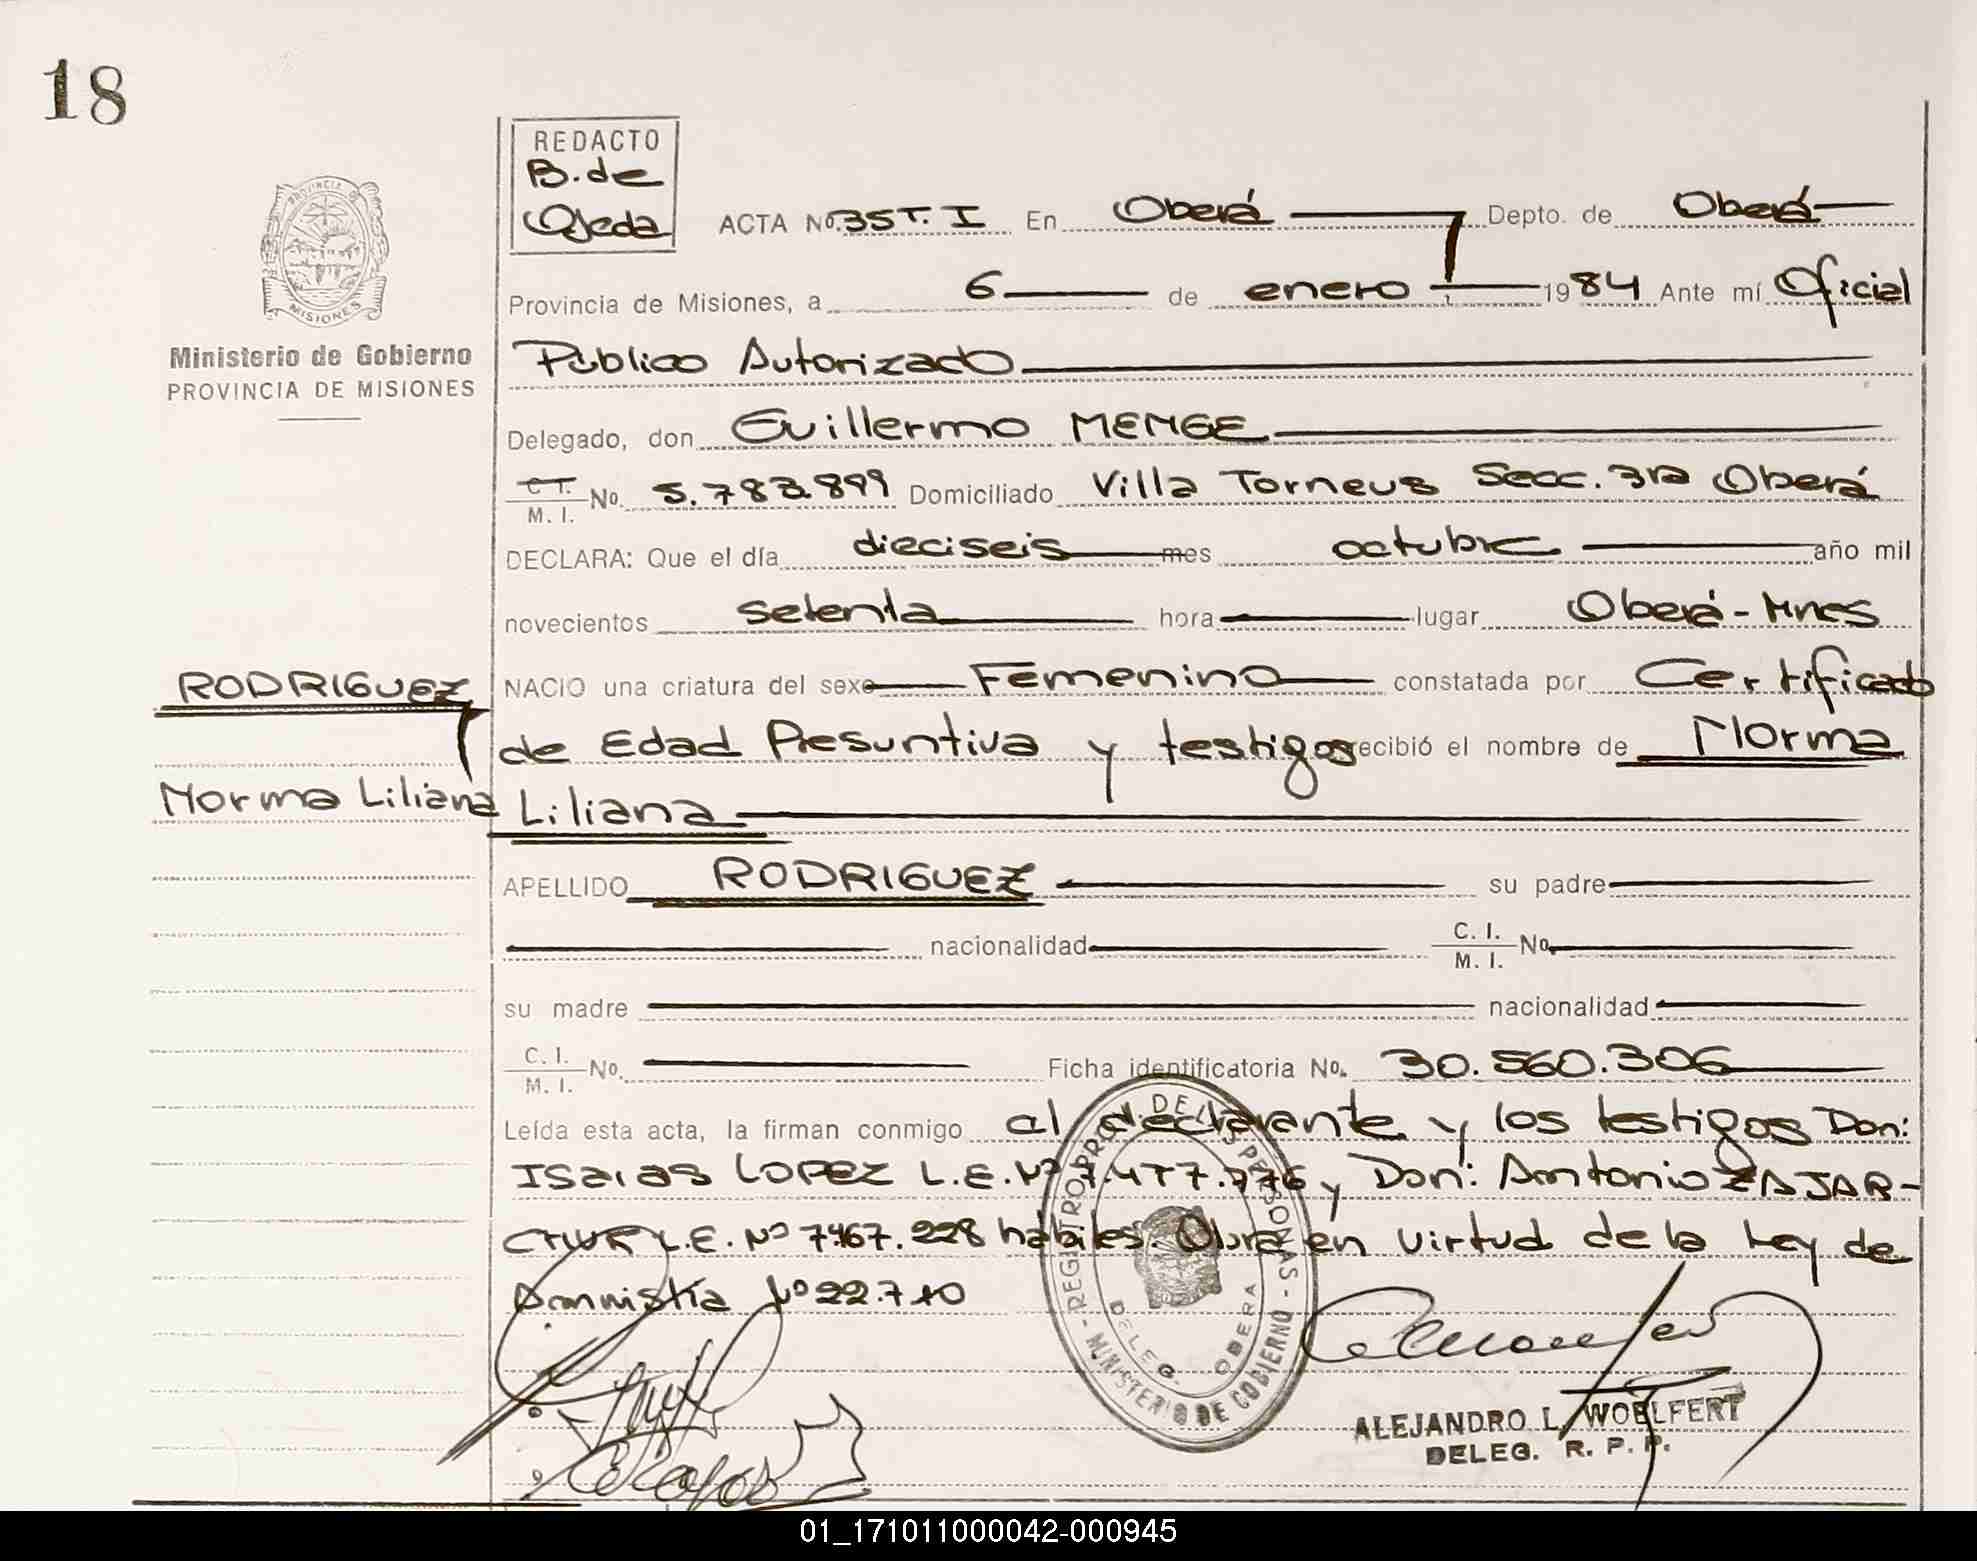 18
REDACTO
B. de
Ojeda
PROVINCIA DE
MISIONES
Ministerio de Gobierno
PROVINCIA DE MISIONES
ACTA No. 35 T. I En Oberá Depto. de Oberá
Provincia de Misiones, a 6 de enero 1984 Ante mí Oficial
Público Autorizado
Delegado, don Guillermo MENGE
C I.
M. I. No. 5.783.899 Domiciliado Villa Torneus Secc. 3ra Oberá
DECLARA: Que el día dieciseis mes octubre año mil
novecientos setenta hora lugar Oberá - Mnes
RODRIGUEZ
NACIO una criatura del sexo Femenino constatada por Certificado
de Edad Presuntiva y testigos recibió el nombre de Norma
Norma Liliana
Liliana
APELLIDO RODRIGUEZ su padre
nacionalidad C. I.
M. I. No.
su madre nacionalidad
C. I.
M. I. No. Ficha identificatoria No. 30.560.306
Leída esta acta, la firman conmigo al declarante y los testigos Don:
Isaias LOPEZ L.E. Nº 7.477.776 y Don: Antonio ZAJAR-
L.E. Nº 7.467.228 hábiles. Obra en virtud de la Ley de
Amnistía Nº 22.710
- REGISTRO PROV. DE LAS PERSONAS - MINISTERIO DE GOBIERNO
DELEG. OBERA
ALEJANDRO L. WOELFERT
DELEG. R. P. P.
01_171011000042-000945